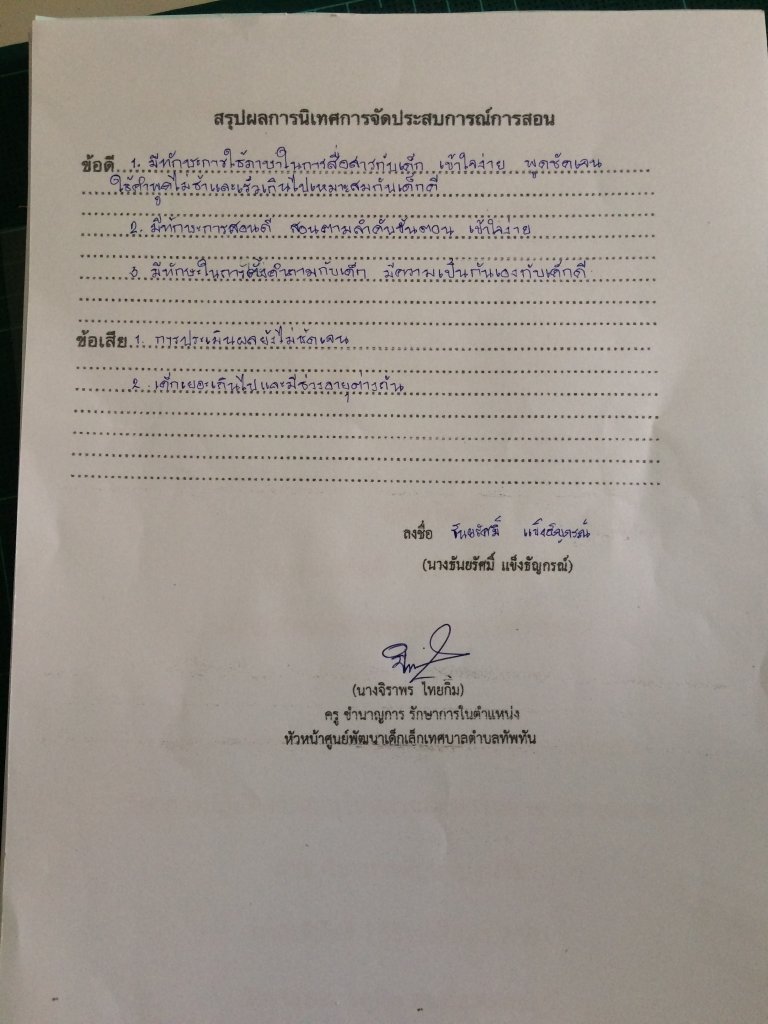 สรุปผลการนิเทศการจัดประสบการณ์การสอน
ข้อดี 1. มีทักษะการใช้ภาษาในการสื่อสารกับเด็ก เข้าใจง่าย พูดชัดเจน
ใช้คำพูดไม่ช้าและเร็วเกินไปเหมาะสมกับเด็กดี
2. มีทักษะการสอนดี สอนตามลำดับขั้นตอน เข้าใจง่าย
3. มีทักษะในการตั้งคำถามกับเด็ก มีความเป็นกันเองกับเด็กดี
ข้อเสีย 1. การประเมินผลยังไม่ชัดเจน
2. เด็กเยอะเกินไปและมีช่วงอายุต่างกัน
ลงชื่อ ธันยรัศมิ์ แข็งธัญกรณ์
(นางธันยรัศมิ์ แข็งธัญกรณ์)
(นางจิราพร ไทยกิ้ม)
ครู ชำนาญการ รักษาการในตำแหน่ง
หัวหน้าศูนย์พัฒนาเด็กเล็กเทศบาลตำบลทัพทัน